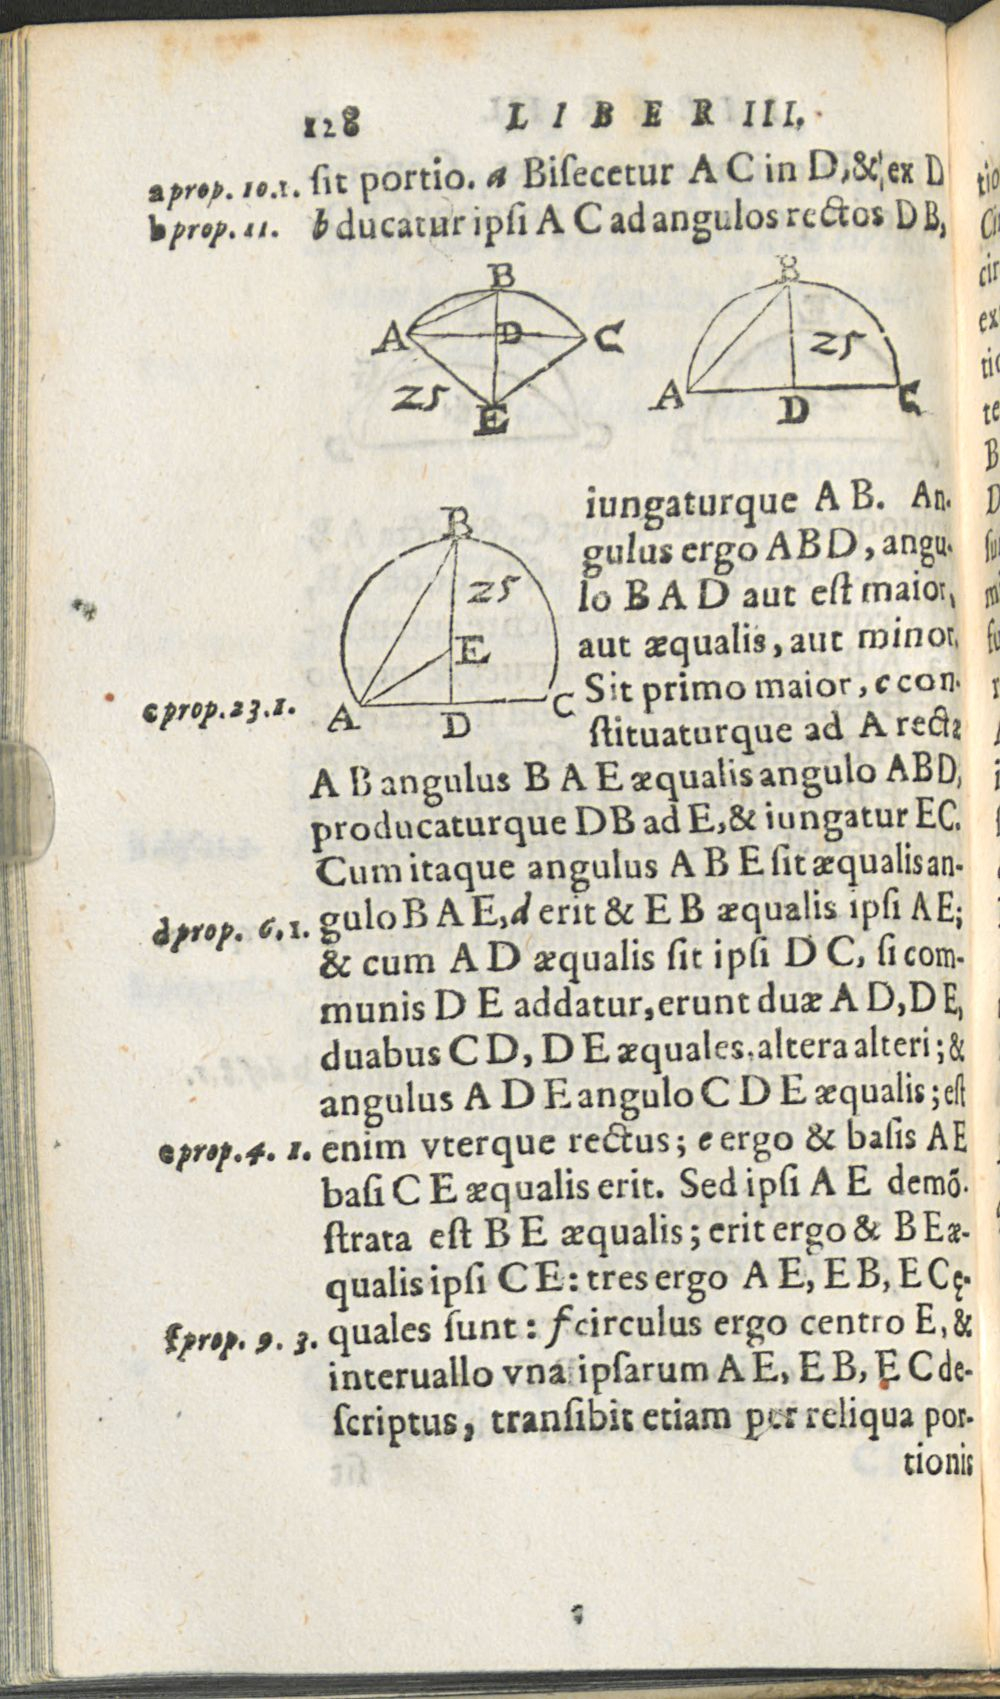 128 LIBER III.
a prop. 10.1. ſit portio. a Biſecetur A C in D, & ex D
b prop. 11. b ducatur ipſi A C ad angulos rectos D B,
B
A D C
25
E
B
25
A D C
B
25
E
A D C
iungaturque A B. An-
gulus ergo A B D, angu-
lo B A D aut eſt maior,
aut æqualis, aut minor.
Sit primo maior, c con-
c prop. 23. 1. ſtituaturque ad A recta
A B angulus B A E æqualis angulo A B D,
producaturque D B ad E, & iungatur E C.
Cum itaque angulus A B E ſit æqualis an-
d prop. 6. 1. gulo B A E, d erit & E B æqualis ipſi A E;
& cum A D æqualis ſit ipſi D C, ſi com-
munis D E addatur, erunt duæ A D, D E,
duabus C D, D E æquales, altera alteri; &
angulus A D E angulo C D E æqualis; eſt
e prop. 4. 1. enim vterque rectus; e ergo & baſis A E
baſi C E æqualis erit. Sed ipſi A E demõ-
ſtrata eſt B E æqualis; erit ergo & B E æ-
qualis ipſi C E: tres ergo A E, E B, E C ę-
f prop. 9. 3. quales ſunt: f circulus ergo centro E, &
interuallo vna ipſarum A E, E B, E C de-
ſcriptus, tranſibit etiam per reliqua por-
tionis